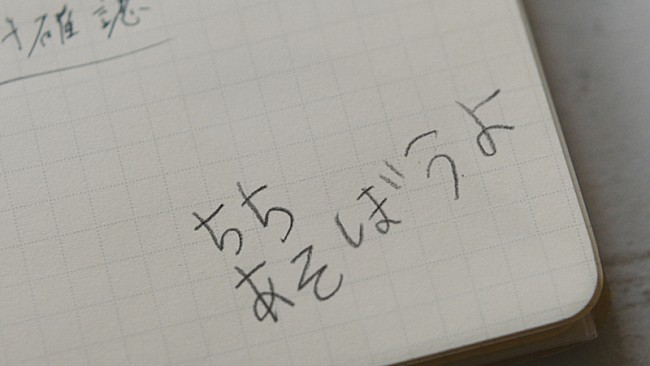 確認
ちち
あそぼうよ